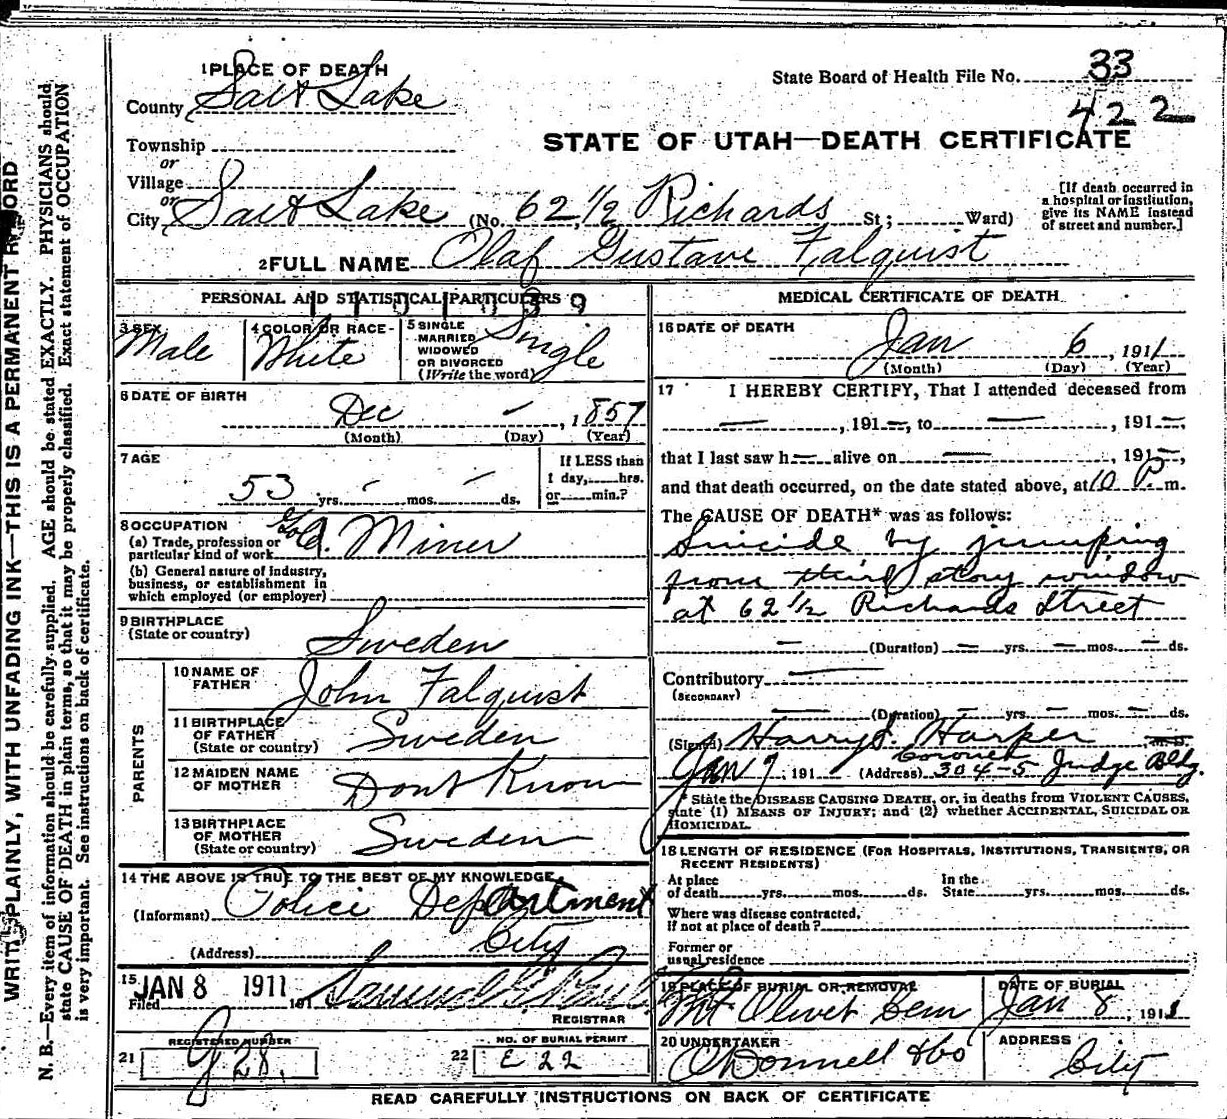 WRITE PLAINLY, WITH UNFADING INK—THIS IS A PERMANENT RECORD
N. B.—Every item of information should be carefully supplied. AGE should be stated EXACTLY. PHYSICIANS should
state CAUSE OF DEATH in plain terms, so that it may be properly classified. Exact statement of OCCUPATION
is very important. See instructions on back of certificate.
1 PLACE OF DEATH
County Salt Lake
Township
or
Village
or
City Salt Lake (No. 62 1/2 Richards St; Ward)
State Board of Health File No. 33
422
STATE OF UTAH—DEATH CERTIFICATE
[If death occurred in
a hospital or institution,
give its NAME instead
of street and number.]
2 FULL NAME Olaf Gustave Falquist
PERSONAL AND STATISTICAL PARTICULARS
3 SEX Male
4 COLOR OR RACE White
5 SINGLE
MARRIED
WIDOWED
OR DIVORCED
(Write the word) Single
6 DATE OF BIRTH
Dec — , 1857
(Month) (Day) (Year)
7 AGE
53 yrs. - mos. - ds.
If LESS than
1 day, hrs.
or min.?
8 OCCUPATION
(a) Trade, profession or
particular kind of work Gold Miner
(b) General nature of industry,
business, or establishment in
which employed (or employer)
9 BIRTHPLACE
(State or country) Sweden
PARENTS
10 NAME OF
FATHER John Falquist
11 BIRTHPLACE
OF FATHER
(State or country) Sweden
12 MAIDEN NAME
OF MOTHER Dont Know
13 BIRTHPLACE
OF MOTHER
(State or country) Sweden
14 THE ABOVE IS TRUE TO THE BEST OF MY KNOWLEDGE
(Informant) Police Department
(Address) City
15
Filed JAN 8 1911 191
REGISTRAR
REGISTERED NUMBER
21 G 28.
NO. OF BURIAL PERMIT
22 E 22
MEDICAL CERTIFICATE OF DEATH
16 DATE OF DEATH
Jan 6 , 1911
(Month) (Day) (Year)
17 I HEREBY CERTIFY, That I attended deceased from
— , 191 —, to — , 191 —,
that I last saw h— alive on — , 191 —,
and that death occurred, on the date stated above, at 10 P. m.
The CAUSE OF DEATH* was as follows:
Suicide by jumping
from third story window
at 62 1/2 Richards Street
— (Duration) — yrs. — mos. — ds.
Contributory —
(SECONDARY)
— (Duration) — yrs. — mos. — ds.
(Signed) Harry S. Harper M. D.
Coroner
Jan 7, 191 (Address) 304-5 Judge Bldg.
* State the DISEASE CAUSING DEATH, or, in deaths from VIOLENT CAUSES,
state (1) MEANS OF INJURY; and (2) whether ACCIDENTAL, SUICIDAL OR
HOMICIDAL.
18 LENGTH OF RESIDENCE (FOR HOSPITALS, INSTITUTIONS, TRANSIENTS, OR
RECENT RESIDENTS)
At place
of death yrs. mos. ds.
In the
State yrs. mos. ds.
Where was disease contracted,
If not at place of death?
Former or
usual residence
19 PLACE OF BURIAL OR REMOVAL
Mt Olivet Cem
DATE OF BURIAL
Jan 8 , 1911
20 UNDERTAKER
O'Donnell & Co
ADDRESS
City
READ CAREFULLY INSTRUCTIONS ON BACK OF CERTIFICATE